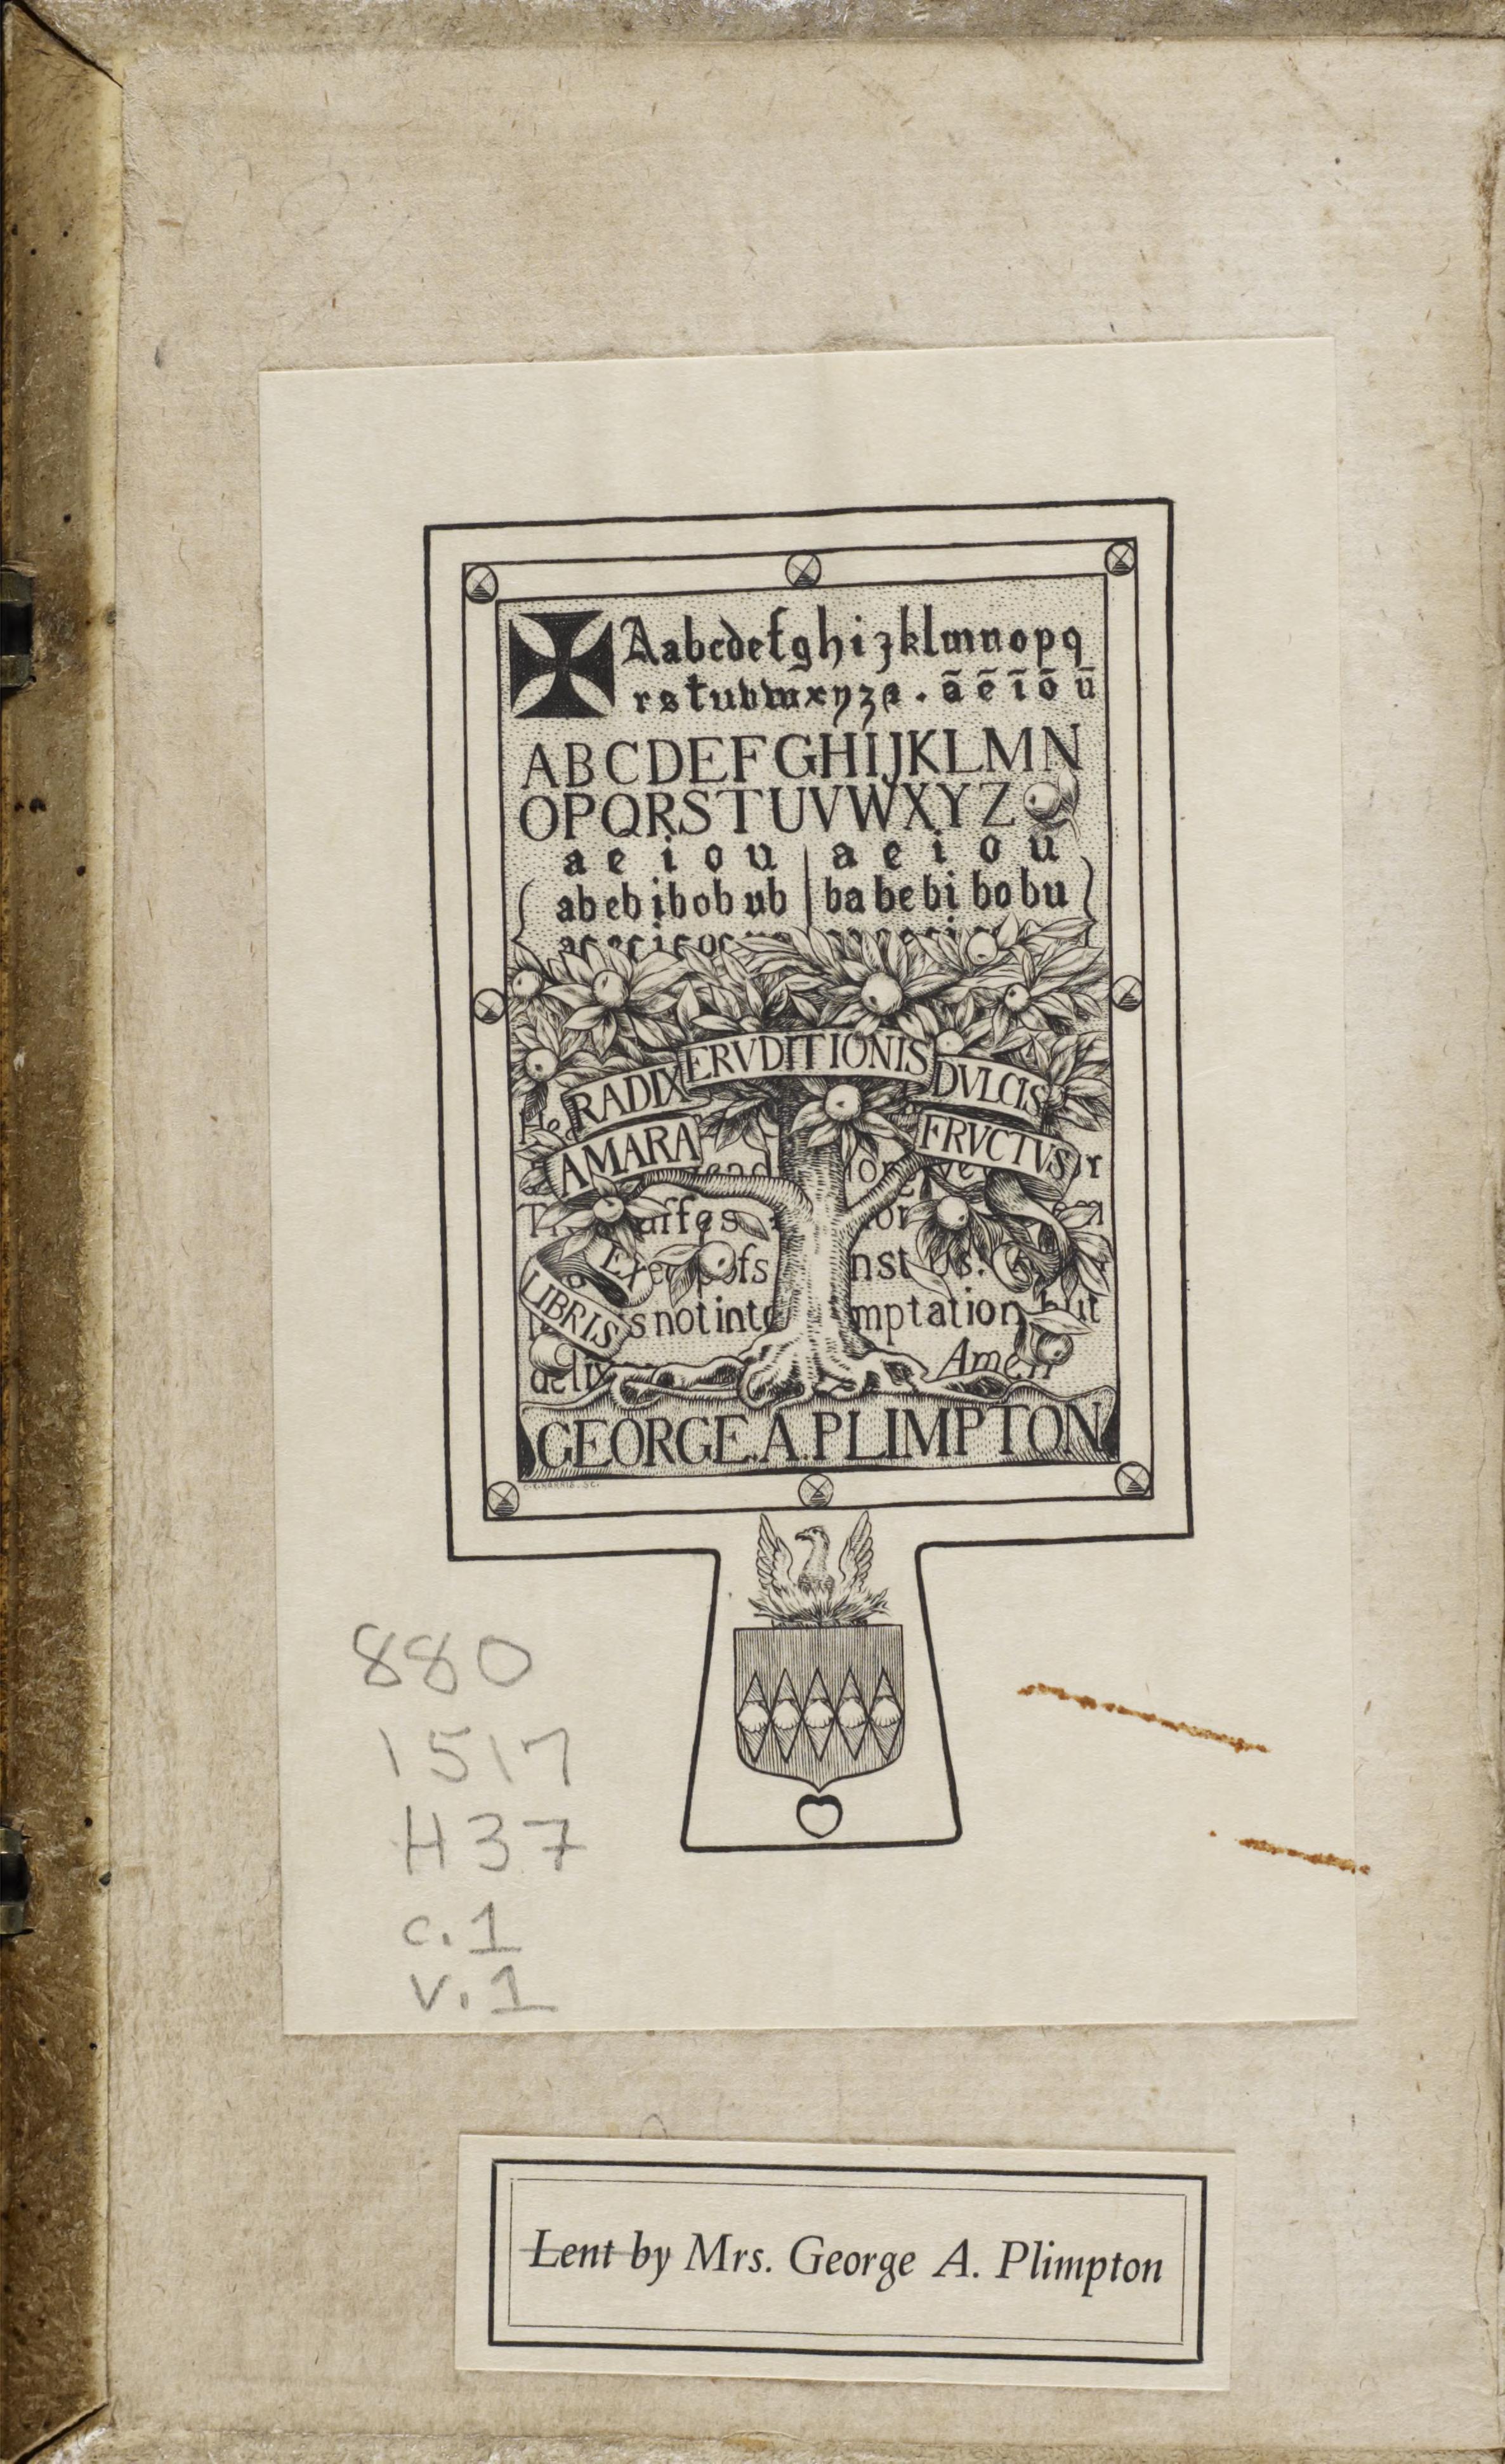 Aabcdefghijklmnopq
rstuvwxyz . ā ē ī ō ū
ABCDEFGHIJKLMN
OPQRSTUVWXYZ
a e i o u | a e i o u
ab eb ib ob ub | ba be bi bo bu
RADIX ERVDITIONIS DVLCIS
AMARA FRVCTVS
nst us:
EX
LIBRIS
s not into mptation but
Amen
GEORGE.A.PLIMPTON
880
1517
H37
c.1
v.1
Lent by Mrs. George A. Plimpton